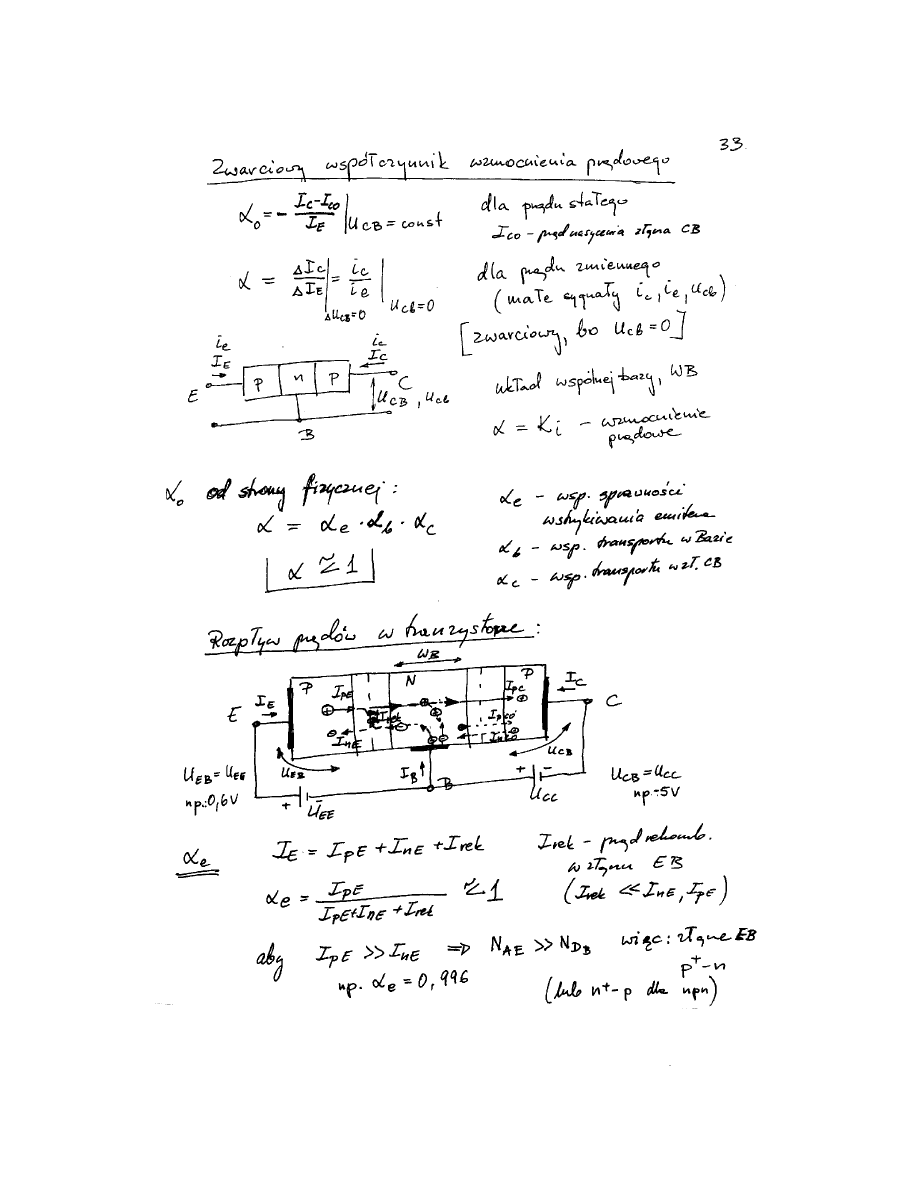 33.
Zwarciowy współczynnik wzmocnienia prądowego
α₀ = - (I_C - I_CO) / I_E | U_CB = const
dla prądu stałego
I_CO - prąd nasycenia złącza CB
α = ΔI_C / ΔI_E | ΔU_CB=0 = i_c / i_e | u_cb=0
dla prądu zmiennego
(małe sygnały i_c, i_e, u_cb)
[zwarciowy, bo u_cb = 0]
i_e i_c
I_E I_C
E p n p C
U_CB, u_cb
B
układ wspólnej bazy, WB
α = K_i - wzmocnienie
prądowe
α₀ od strony fizycznej:
α = α_e · α_b · α_c
α ≅ 1
α_e - wsp. sprawności
wstrzykiwania emitera
α_b - wsp. transportu w Bazie
α_c - wsp. transportu w zł. CB
Rozpływ prądów w tranzystorze:
W_B
P N P
E I_E I_pE I_pC I_C C
I_rek I_pCO
I_nE I_nCO
U_EB U_CB
U_EB = U_EE
np.: 0,6V
I_B B
+ - U_EE
+ - U_CC
U_CB = U_CC
np. -5V
α_e
I_E = I_pE + I_nE + I_rek
I_rek - prąd rekomb.
w złączu EB
(I_rek << I_nE, I_pE)
α_e = I_pE / (I_pE + I_nE + I_rek) ≅ 1
aby I_pE >> I_nE ⇒ N_AE >> N_DB więc: złącze EB
p⁺-n
np. α_e = 0,996
(lub n⁺-p dla npn)